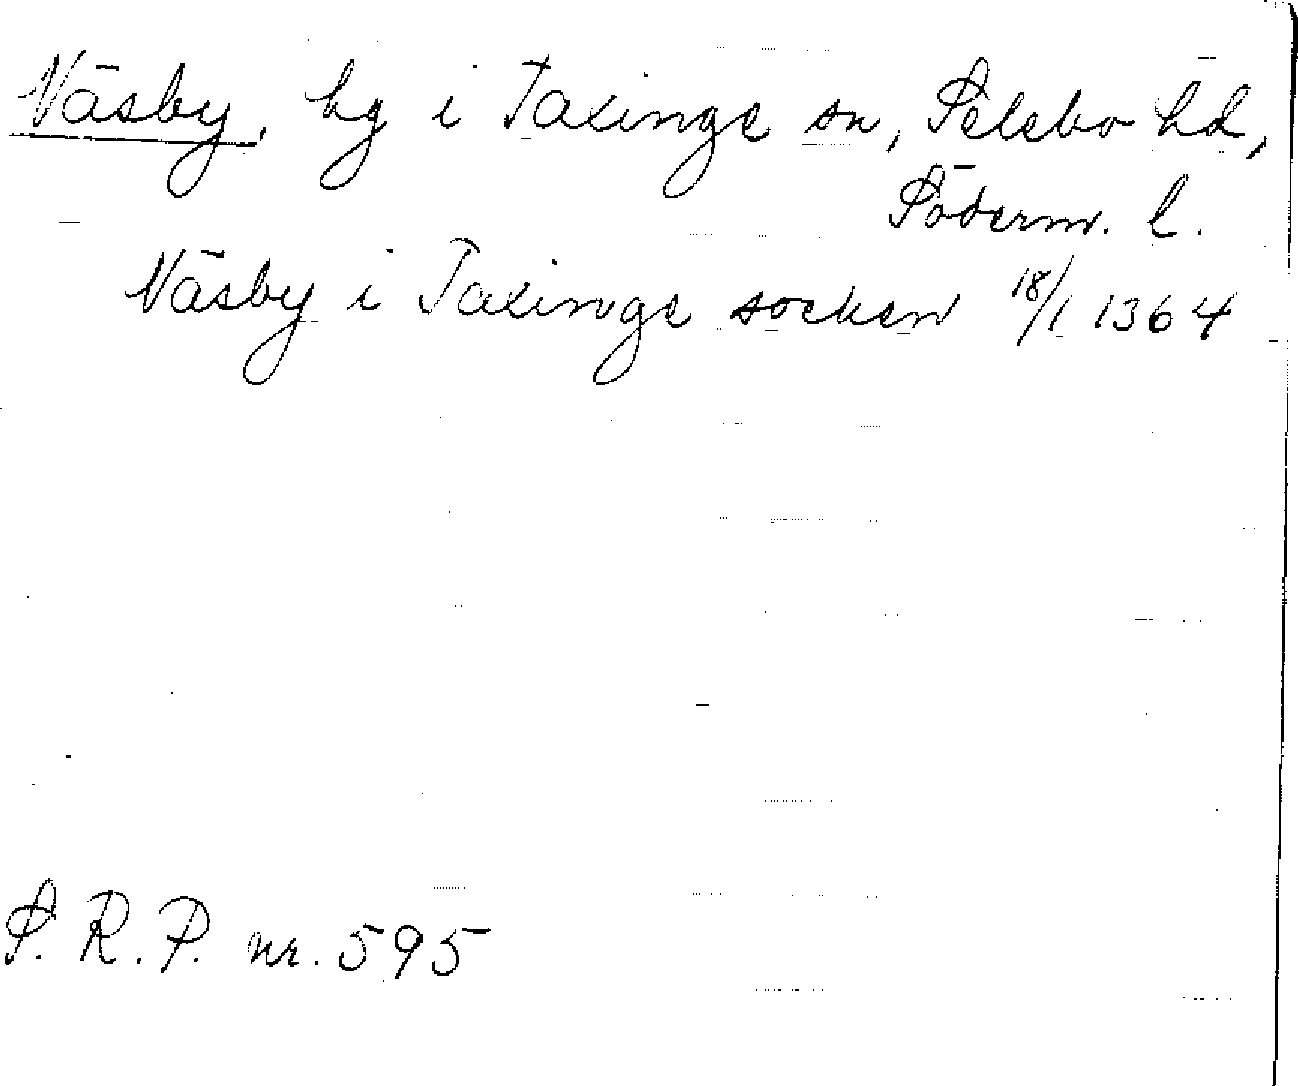 Väsby, hg i Taxinge sn, Selebo hd,
Söderm. l.
Väsby i Taxinge socken 18/1 1364
S. R. P. nr. 595